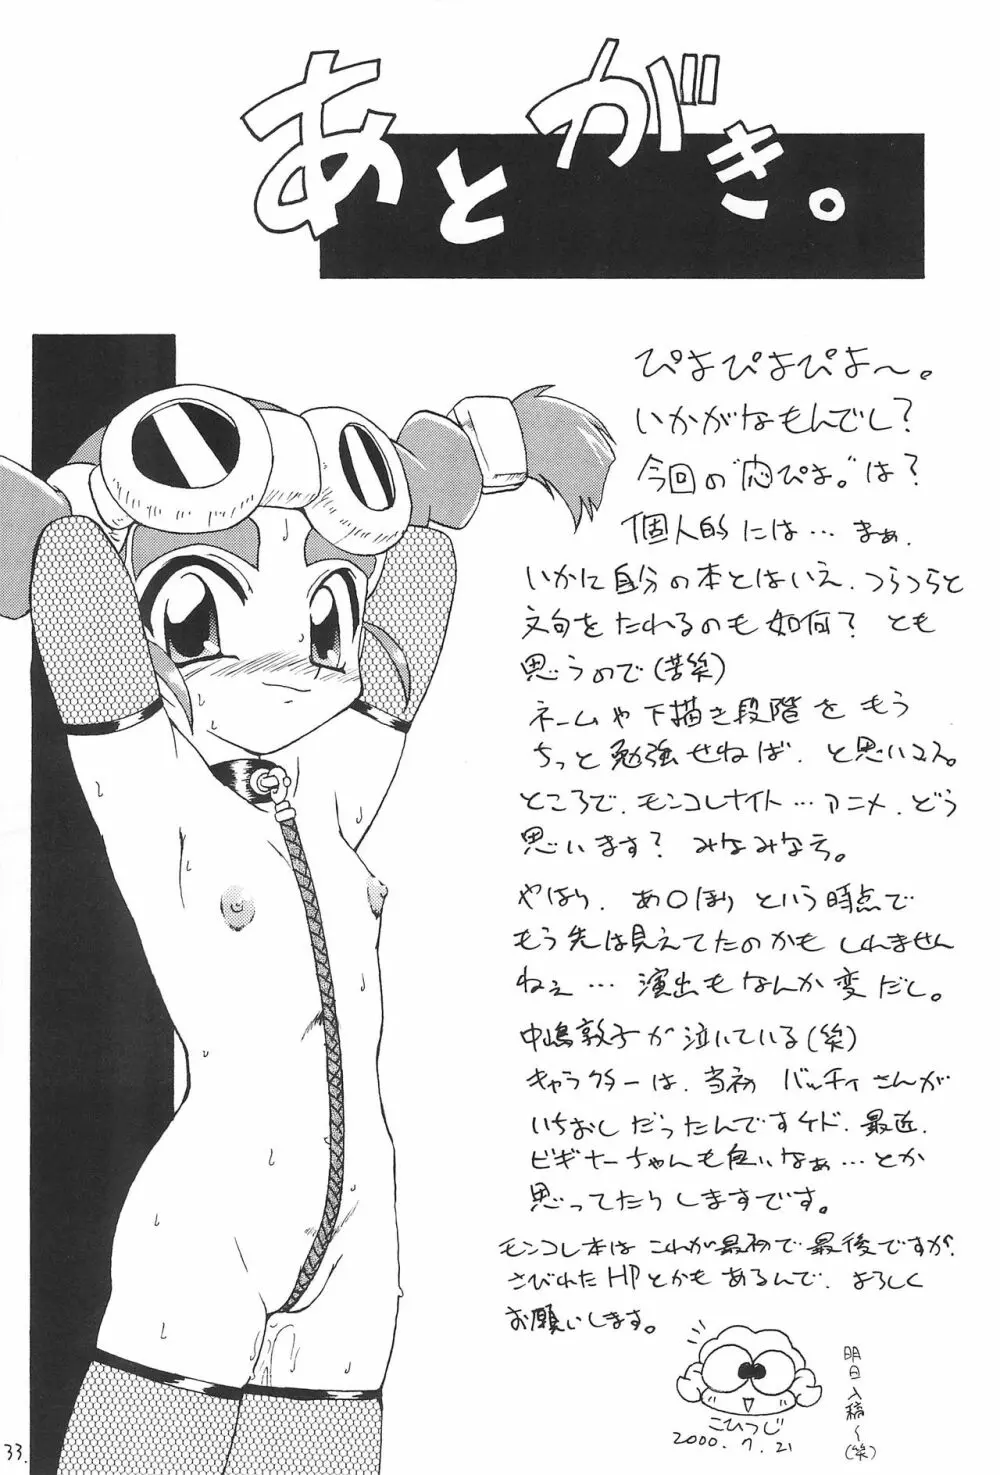 あとがき。
ぴよぴよぴよ〜。
いかがなもんでし?
今回の"応ぴよ。"は?
個人的には…まぁ、
いかに自分の本とはいえ、つらつらと
文句をたれるのも如何? とも
思うので(苦笑)
ネームや下描き段階をもう
ちっと勉強せねば、と思いマス。
ところで、モンコレナイト…アニメ、どう
思います? みなみなう。
やはり、あ〇ほり という時点で
もう先は見えてたのかも しれません
ねぇ… 演出もなんか変だし。
中嶋敦子が泣いている(笑)
キャラクターは、当初 バッチィさんが
いちおしだったんですケド、最近、
ビギナーちゃんも良いなぁ…とか
思ってたらしますです。
モンコレ本は これが最初で最後ですが、
さびれたHPとかも あるんで、よろしく
お願いします。
こひつじ
2000.7.21
明日入稿〜(笑)
33.